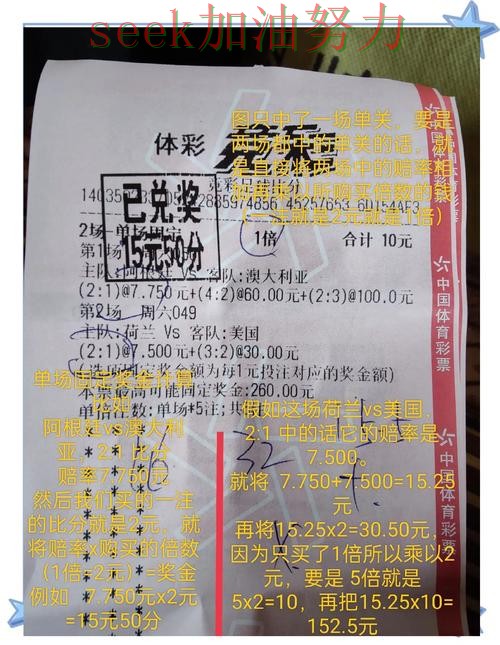 seek加油努力
图只中了一场单关，要是
两场都中的单关的话，就
是直接将两场中的赔率相
（一注就是2元就是1倍）
体彩
已兑奖
15元50分
2场-单场固定
1倍
合计 10元
主队:阿根廷 Vs 客队:澳大利亚
(2:1)@7.750元+(4:2)@60.00元+(2:3)@100.0元
第2场 周六049
主队:荷兰 Vs 客队:美国
(2:1)@7.500元+(3:2)@30.00元
本票最高可能固定奖金:260.00元
单倍注数:单场*5注;共
单场固定奖金计算
比如
阿根廷vs澳大利
亚，2:1 比分
赔率7.750元
然后我们买的一注
的比分就是2元，就
将赔率x购买的倍数
（1倍=2元）=奖金
例如 7.750元x2元
=15元50分
假如这场荷兰vs美国，
2:1 中的话它的赔率是
7.500。
就将 7.750+7.500=15.25
元
再将15.25x2=30.50元，
因为只买了1倍所以乘以2
元，要是 5倍就是
5x2=10，再把15.25x10=
152.5元
32
中国体育彩票
中国体育彩票
中国体育彩票